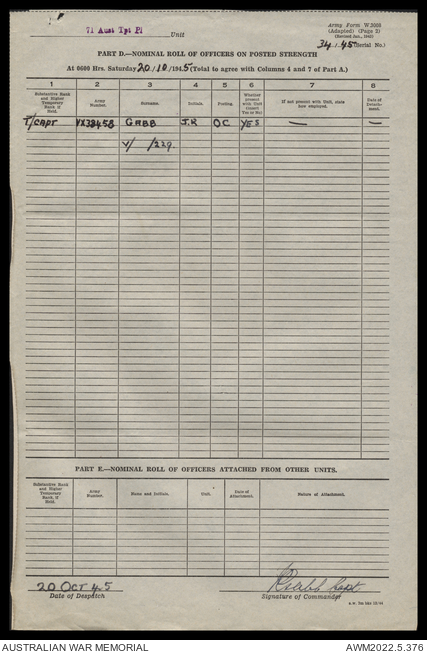 71 Aust Tpt Pl
Unit
Army Form W.3008
(Adapted) (Page 2)
(Revised Jan., 1943)
34/45 (Serial No.)
PART D.—NOMINAL ROLL OF OFFICERS ON POSTED STRENGTH
At 0600 Hrs. Saturday 20/10/1945 (Total to agree with Columns 4 and 7 of Part A.)
1 2 3 4 5 6 7 8
Substantive Rank and Higher Temporary Rank if Held. Army Number. Surname. Initials. Posting. Whether present with Unit (insert Yes or No) If not present with Unit, state how employed. Date of Detachment.
T/CAPT VX38458 GABB J.R OC YES — —
V/ /229.
PART E.—NOMINAL ROLL OF OFFICERS ATTACHED FROM OTHER UNITS.
Substantive Rank and Higher Temporary Rank, if Held. Army Number. Name and Initials. Unit. Date of Attachment. Nature of Attachment.
20 OCT 45
Date of Despatch
Gabb Capt
Signature of Commander
AUSTRALIAN WAR MEMORIAL
AWM2022.5.376